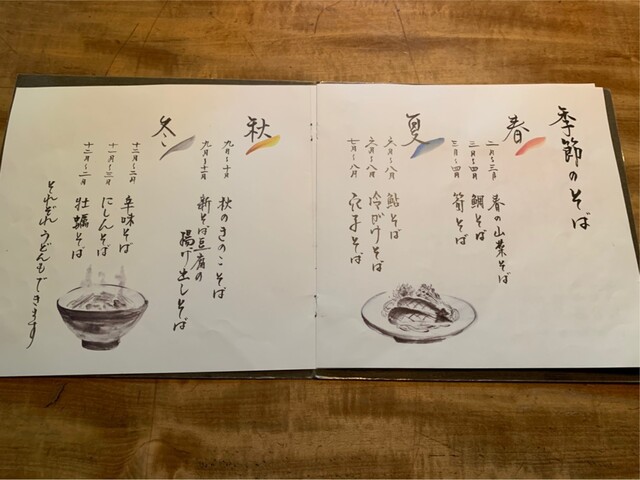 季節のそば
春
二月~三月 春の山菜そば
三月~四月 鯛そば
三月~四月 筍そば
夏
六月~八月 鮎そば
六月~八月 冷がけそば
七月~八月 茄子そば
秋
九月~十月 秋のきのこそば
九月~十一月 新そば豆腐の
揚げ出しそば
冬
十二月~二月 辛味そば
十一月~三月 にしんそば
十二月~二月 牡蠣そば
それぞれうどんもできます